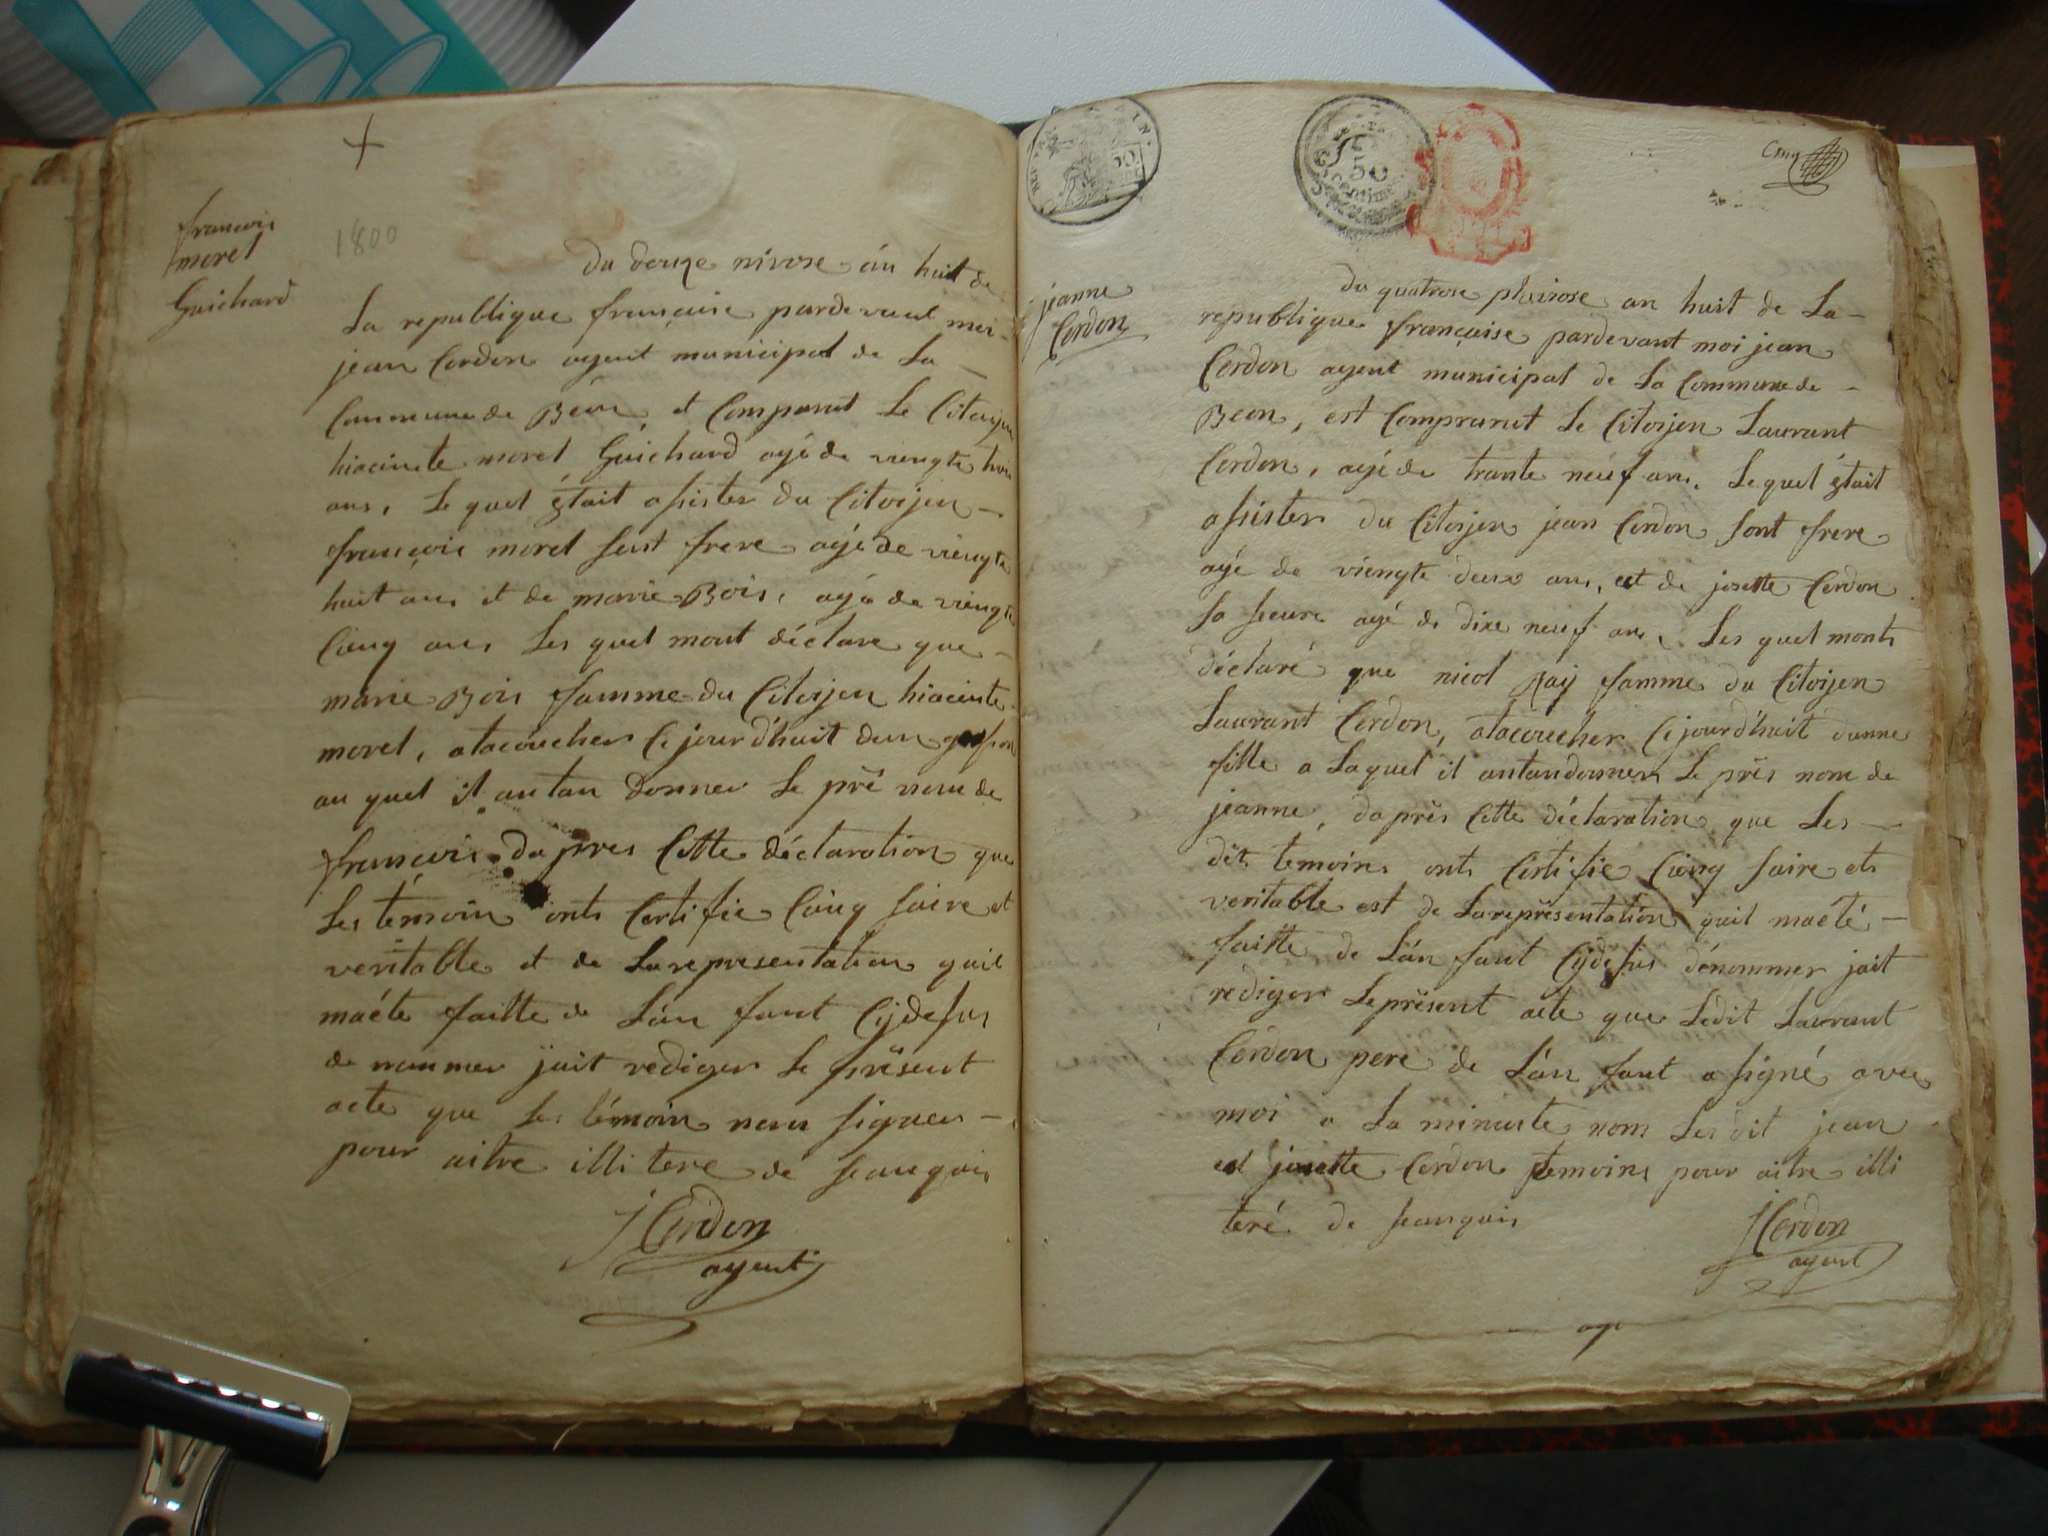 françois
morel
Guichard
1800
du douze nivose án huit de
La republique françaisie pardevant moi
jean Cordon agent municipal de La
Commune de Béon, et Comparut Le Citoijen
hiacinte morel Guichard agé de viengte trois
ans, Le quel était assister du Citoijen
françois morel sont frere agé de viengte
huit ans et de marie Bois, agé de viengte
Cienq ans Les quel mont déclare que
marie Bois famme du Citoijen hiacinte
morel, atacoucher Ce jourdhuit dun garson
au quel il antan donner Le pré nom de
françois, dapres Cette déclaration que
Les témoin onts Certifie Cienq saire et
veritable et de La representation quil
maéte faitte de Lán fant Cijdesus
de nommer jait rediger Le présent
acte que Les témoin nons signer
pour aitre illitere de seanquis
J Cordon
agent
50
50
Centimes
Cinq
jeanne
Cordon
du quatrose pluviose an huit de La
republique française pardevant moi jean
Cordon agent municipal de La Commune de
Beon, est Compranut Le Citoijen Laurant
Cordon, agé de trante neuf ans, Le quel était
assister du Citoijen jean Cordon sont frere
agé de viengte deux ans, et de josette Cordon
sa seure agé de dixe neuf ans, Les quel monts
déclaré que nicol Ray famme du Citoijen
Laurant Cordon, atacoucher Ce jourdhuit dunne
fille a Laquel il antandonner Le prés nom de
jeanne, daprés Cette déclaration que Les
dit temoins onts Certifie Cienq saire ets
veritable est de La représentation quil maété
faitte de Lán fant Cijdesus dénommer jait
rediger Le présent acte que Ledit Laurant
Cordon pere de Lán fant a signé avec
moi a La minuste nom Les dit jean
et josette Cordon temoins pour aitre illi
teré de seanquis
J Cordon
agent